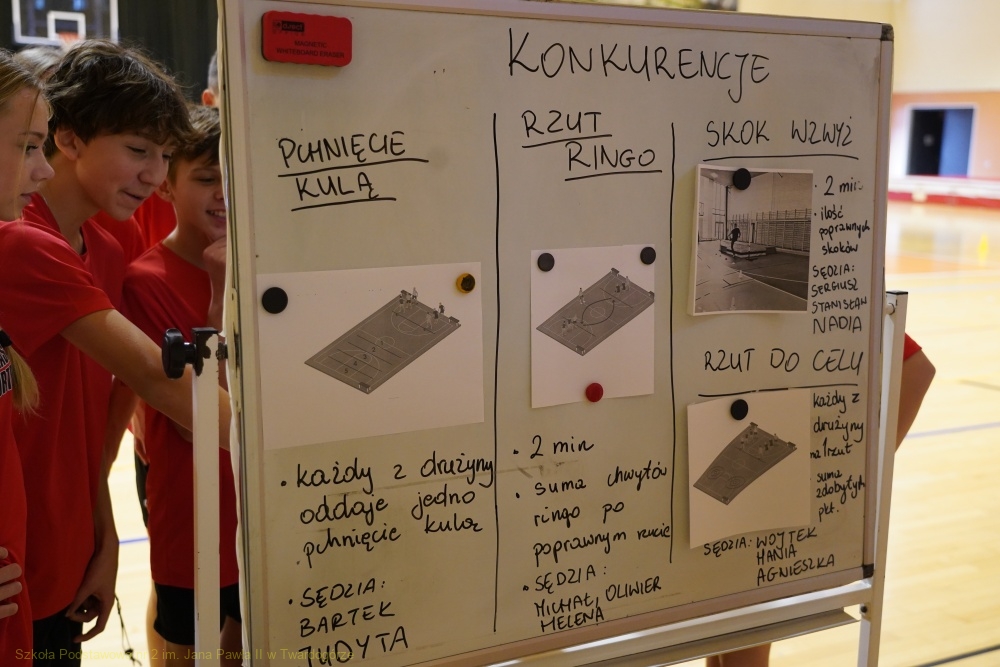 MAGNETIC
WHITEBOARD ERASER
KONKURENCJE
PCHNIĘCIE
KULĄ
• każdy z drużyny
oddaje jedno
pchnięcie kulą
• SĘDZIA:
BARTEK
RZUT
RINGO
• 2 min
• suma chwytów
ringo po
poprawnym rzucie
• SĘDZIA:
MICHAŁ, OLIWIER
HELENA
SKOK WZWYŻ
• 2 min
• ilość
poprawnych
skoków
SĘDZIA:
SERGIUSZ
STANISŁAW
NADIA
RZUT DO CELU
każdy z
drużyny
na 1 rzut
suma
zdobytych
pkt.
SĘDZIA: WOJTEK
HANIA
AGNIESZKA
Szkoła Podstawowa 2 im. Jana Pawła II w Twardogórze